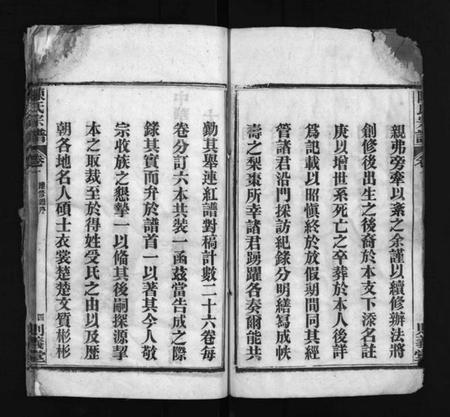 親弗旁牽以紊之余謹以續修辦法將
創修後出生之後裔於本支下添名註
庚以增世系死亡之卒葬於本人後詳
爲記載以昭愼終於放假期間同其經
管諸君沿門採訪紀錄分明繕寫成帙
壽之梨棗所幸諸君踴躍各奏爾能共
勷其舉連紅譜對稿計數二十六卷每
卷分訂六本共裝一函茲當告成之際
錄其實而弁於譜首一以著其今人敬
宗收族之懇摯一以備其後嗣探源挈
本之取裁至於得姓受氏之由以及歷
朝各地名人碩士衣裳楚楚文質彬彬
氏宗譜
卷
四
則義堂